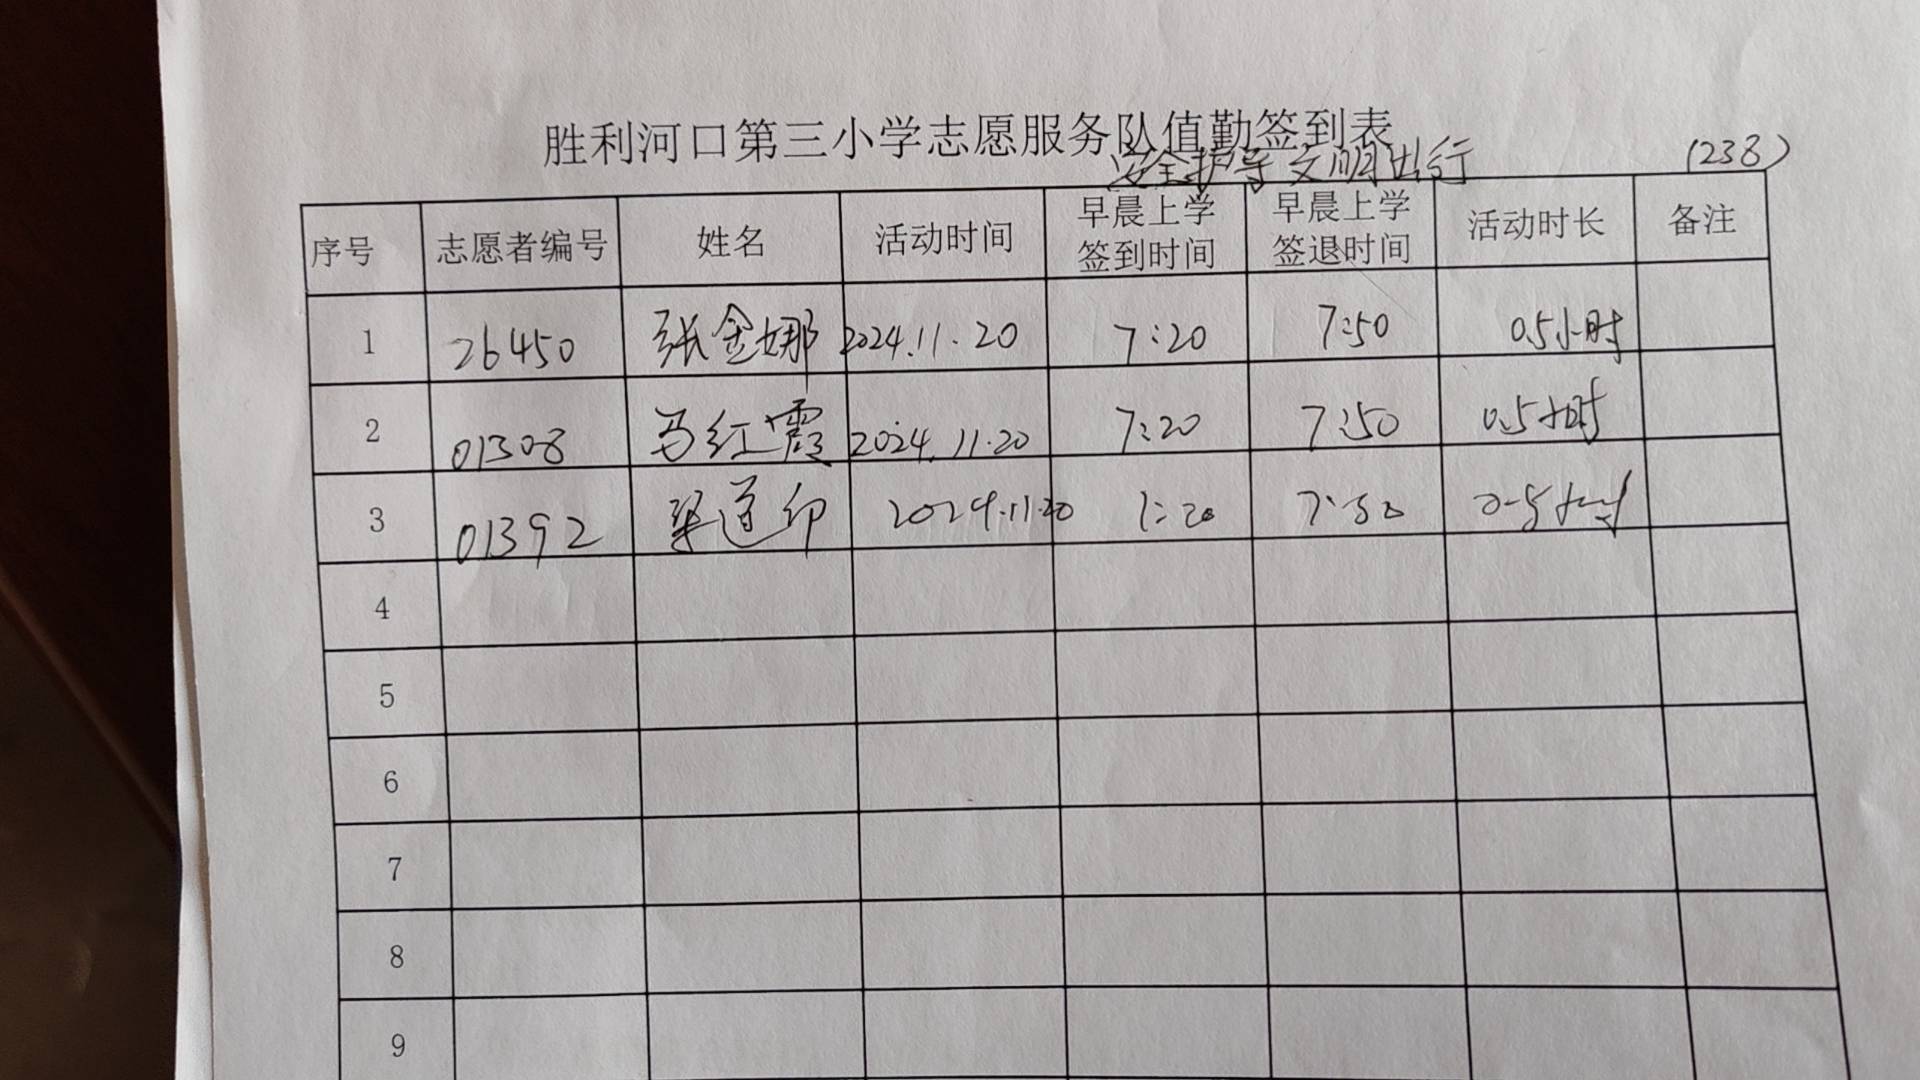 胜利河口第三小学志愿服务队值勤签到表
安全护导 文明出行 (238)
序号 志愿者编号 姓名 活动时间 早晨上学签到时间 早晨上学签退时间 活动时长 备注
1 26450 张金娜 2024.11.20 7:20 7:50 0.5小时
2 01308 马红霞 2024.11.20 7:20 7:50 0.5小时
3 01392 道印 2024.11.20 7:20 7:50 0.5小时
4
5
6
7
8
9